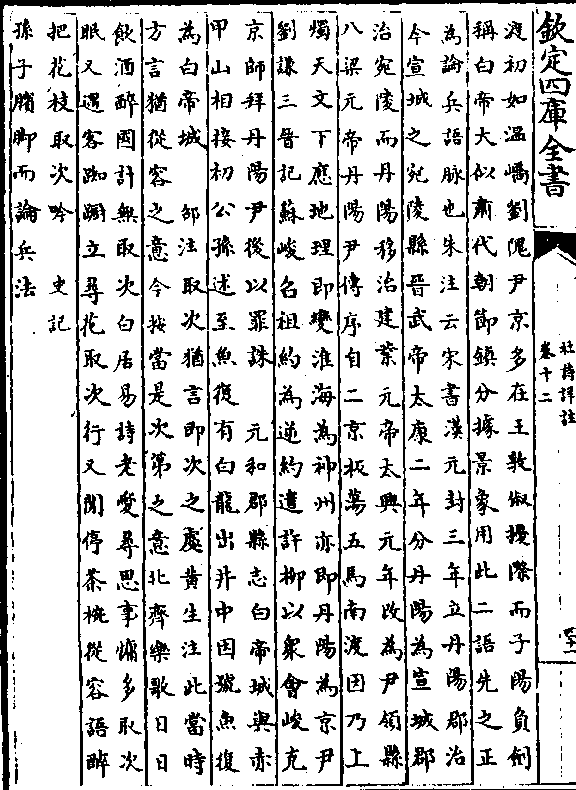 欽定四庫全書
杜詩詳註
卷十二
渡初如溫嶠劉隗尹京多在王敦俶擾際而子陽負劍
稱白帝大似肅代朝節鎮分據景象用此二語先之正
為論兵語脉也朱注云宋書漢元封三年立丹陽郡治
今宣城之宛陵縣晉武帝太康二年分丹陽為宣城郡
治宛陵而丹陽移治建業元帝太興元年改為尹領縣
八梁元帝丹陽尹傳序自二京板蕩五馬南渡因乃上
燭天文下應地理即變淮海為神州亦即丹陽為京尹
劉謙三晉記蘇峻召祖約為逆約遣許柳以衆會峻克
京師拜丹陽尹後以罪誅 元和郡縣志白帝城與赤
甲山相接初公孫述至魚復有白龍出井中因號魚復
為白帝城 邵注取次猶言即次之處黄生注此當時
方言猶從容之意今按當是次第之意北齊樂歌日日
飲酒醉國計無取次白居易詩老愛尋思事慵多取次
眠又遇客踟蹰立尋花取次行又閒停茶椀從容語醉
把花枝取次吟 史記
孫子臏脚而論兵法